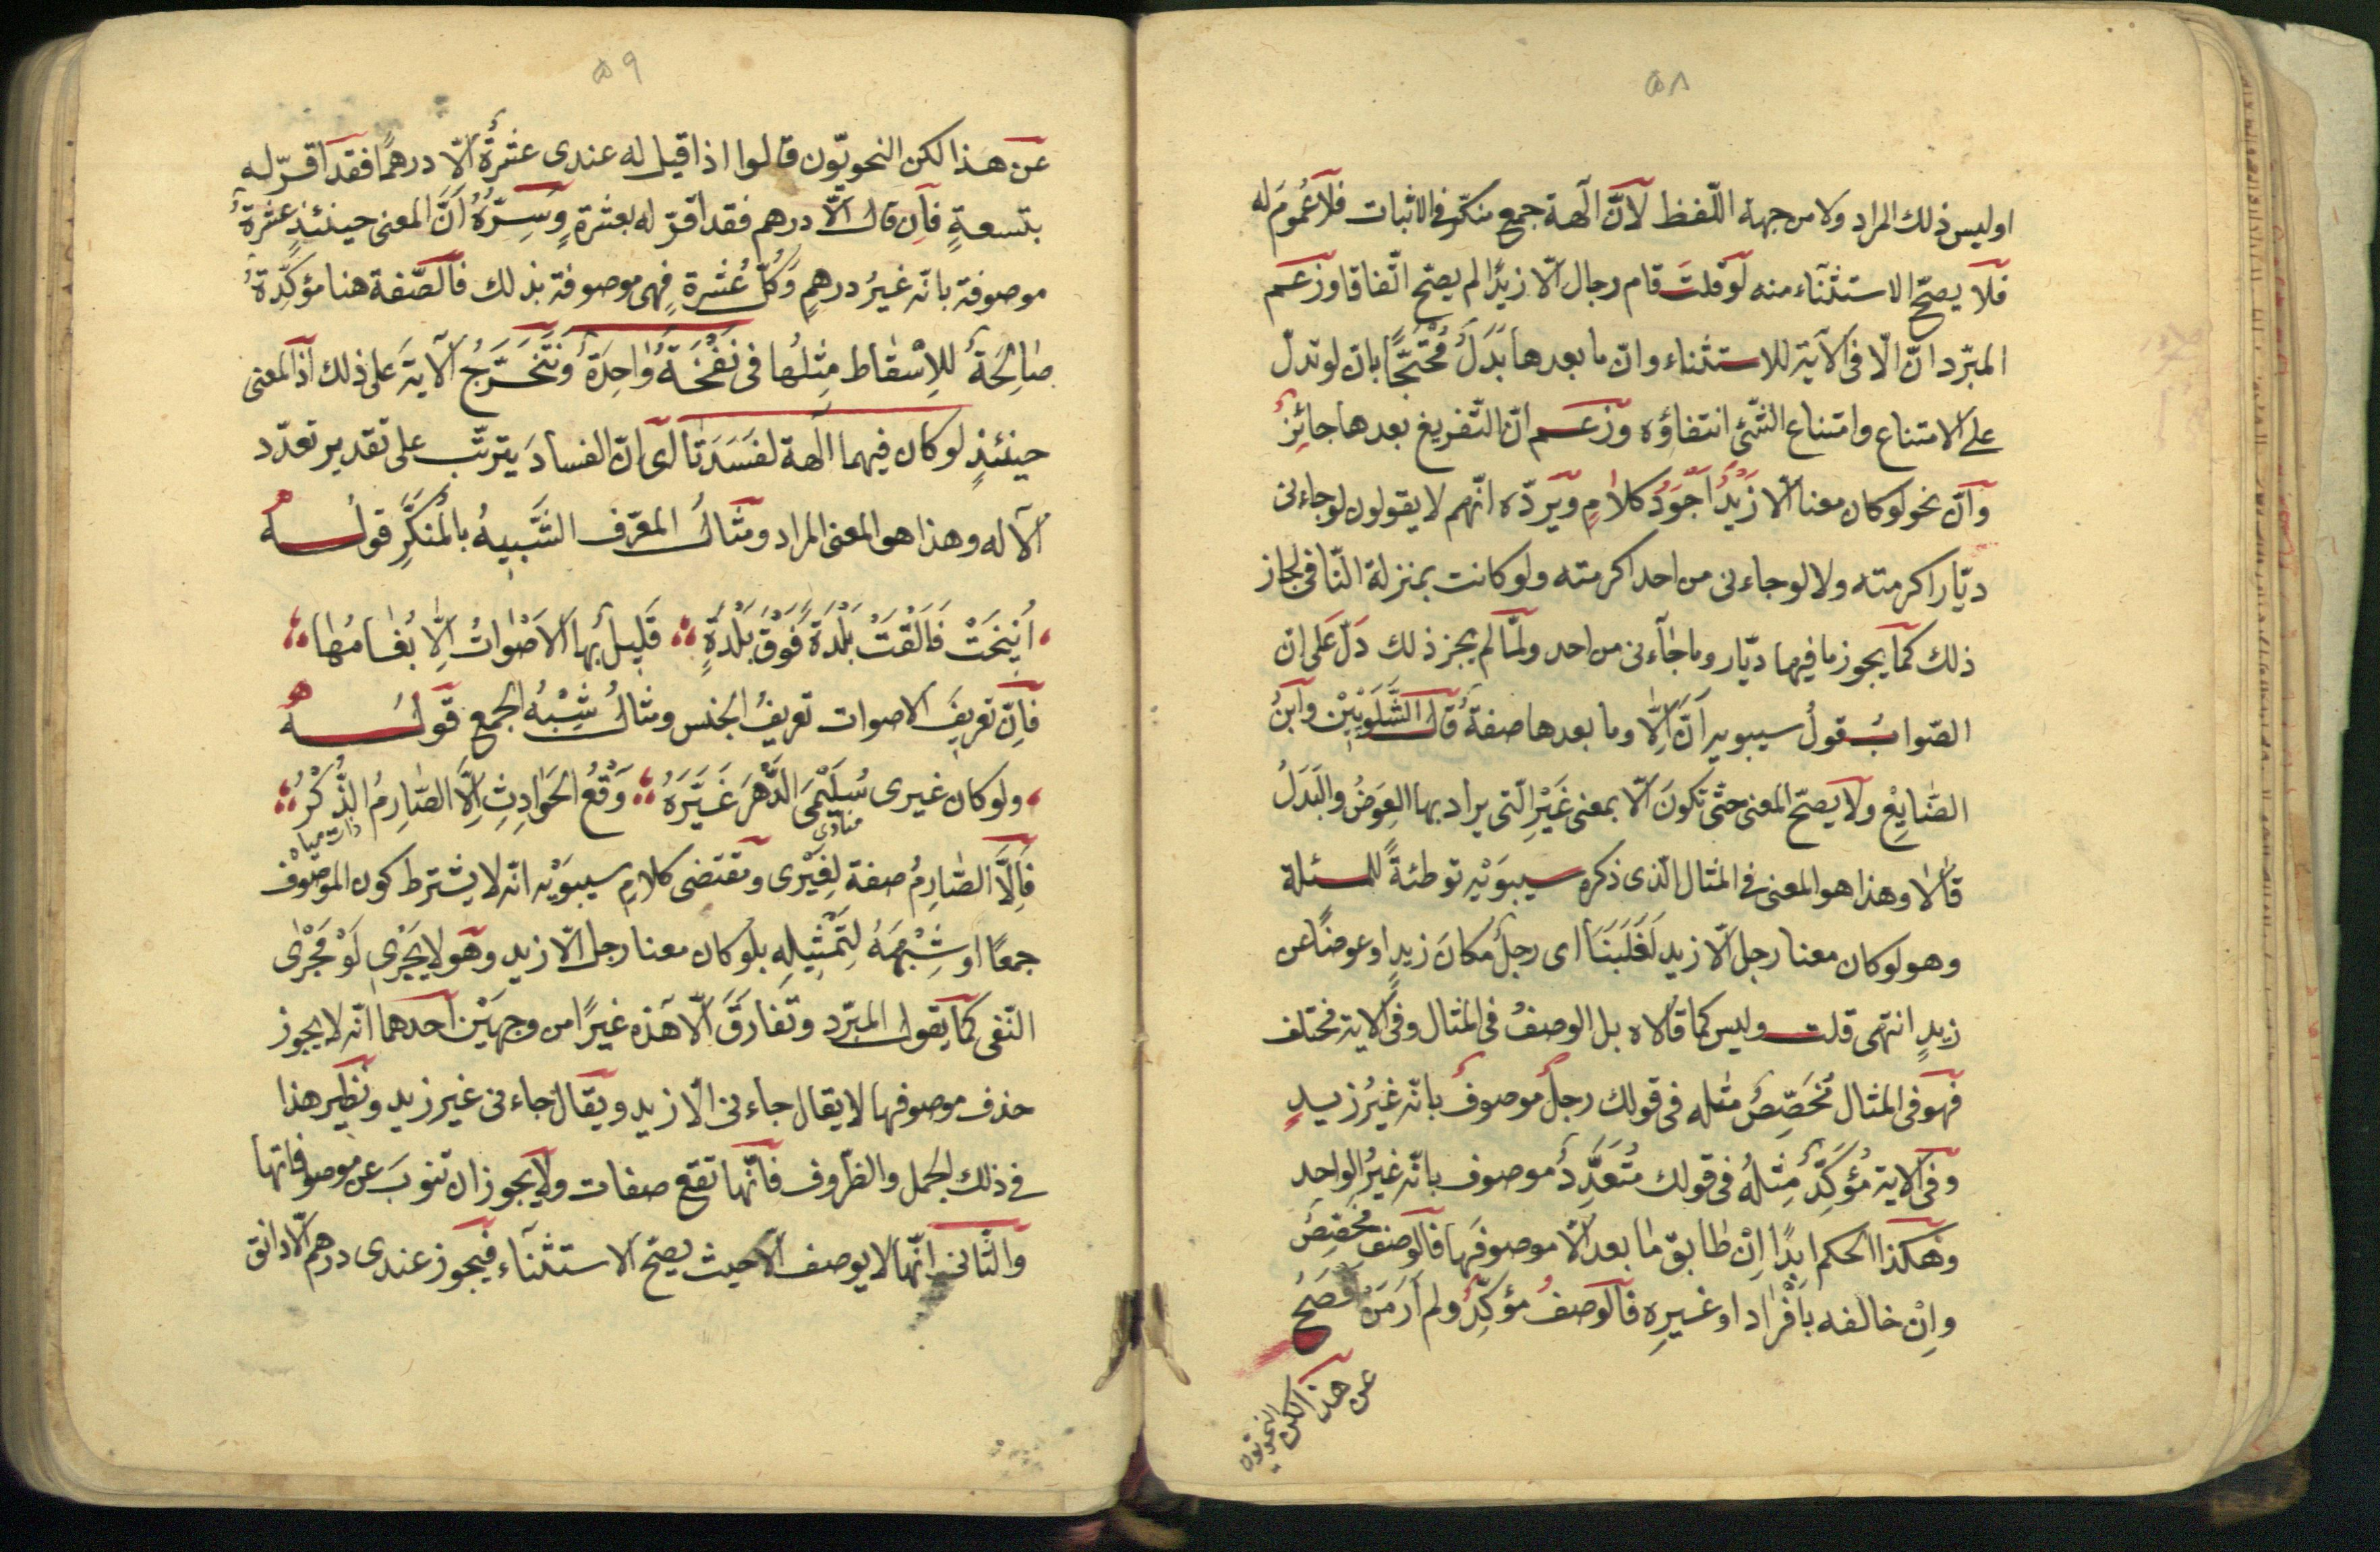 ۵۸
اوليس ذلك المراد ولا من جهة اللّفظ لآنّ آلهة جمع منكّر فى الاثبات فلا عُمومَ له
فلا يصحّ الاستثنآء منه لو قلتَ قام رجال الّا زيدًا لم يصحّ اتّفاقا وزعم
المبرّد انّ الّا فى الآية للاستثناء وانّ ما بعدها بَدَلٌ مُحْتَجًّا بان لو تدلّ
على الامتناع وامتناع الشّئ انتفاؤه وزعم انّ التّفريغ بعدها جائِزٌ
وآنّ نحو لو كان معنا الّا زَيْدٌ اَجْوَدُ كلامٍ ويردّه انّهم لا يقولون لو جاءنى
ديّار اكرمته ولا لو جاءنى من احد اكرمته ولو كانت بمنزلة النّافى لجاز
ذلك كما يجوز ما فيهما ديّار وما جاٰءنى من احد ولمّا لم يجز ذلك دَلّ عَلى انّ
الصّوابُ قولُ سيبويه آنّ اِلّا وما بعدها صفةٌ قال الشَّلَوْبِيْن وابنُ
الضّايِعِ ولا يصحّ المعنى حتّى تكونَ الّا بمعنى غَيْرِ الّتى يراد بها العِوَضُ والبَدَلُ
قالا وهذا هو المعنى فى المثال الّذى ذكره سيبوَيْهِ توطئةً للمسئلة
وهو لو كان معنا رجل الّا زيد لَغَلَبَنَا اى رجلٌ مكانَ زيدٍ او عوضًا عن
زيدٍ انتهى قلت وليس كما قالاه بل الوصفُ فى المثال وفى الاية مختلف
فهو فى المثال مُخَصِّصٌ مثله فى قولك رجلٌ موصوفٌ بانّه غيرُ زيدٍ
وفى الاية مُؤَكِّدٌ مِثلهُ فى قولك مُتَعَدِّدٌ موصوف بانّه غيرُ الواحد
وهكذا الحكم ابدًا اِنْ طابقَ ما بعد الّا موصوفَها فالوصف مُخصِّصٌ
واِنْ خالفه باَفْرٰاد او غيرِه فالوصفُ مؤكِّدٌ ولم اَرَ مَنْ اَفصَحَ
عن هذا لكن النحويّون
۵۹
عن هذا لكن النحويّون قالوا اذا قيل له عندى عشرةٌ الّا درهمًا فقد اقرّ له
بتسعةٍ فاِن قال الّا درهم فقد اقرّ له بعشرةٍ وَسِرُّهُ اَنَّ المعنى حينئذٍ عشرةٌ
موصوفة بانّه غيرُ درهمٍ وَكُلّ عَشَرةٍ فهى موصوفة بذلك فالصّفة هنا مؤكّدةٌ
صٰالِحَةٌ لِلاِسْقٰاط مِثلُها فى نَفْخَةٌ وٰاحِدَةٌ وَتَتَخَرَّجُ الآيةَ على ذلك اذ المعنى
حينئذٍ لو كان فيهما الهة لفَسَدَتٰا اى انّ الفسادَ يترتّب على تقدير تعدّد
الآله وهذا هو المعنى المراد ومثالُ المعرّف الشَّبيهُ بالُمنكَّرِ قولُــهُ
اُنيْخَتْ فَاَلْقَتْ بَلْدَةً فَوْقَ بَلْدَةٍ قَليلٍ بها الاَصْوٰاتُ اِلّا بُغٰامُهٰا
فاِنّ تعريفَ الاصوات تعريفُ الجنس ومثالُ شِبْهُ الجمع قولُــهُ
ولو كان غيرى سُلَيْمَى الدَّهْرَ غَيَّرَهُ وَقْعُ الحَوٰادِثِ اِلَّا الصّٰارِمُ الذَّكَرُ
منادى
فَاِلَّا الصّٰارِمُ صفة لِغَيْرى ومقتضى كلامِ سيبوَيْه انّه لا يشترط كون الموصُوْف
جمعًا او شِبْهَهُ لِتَمْثيلِهِ بلو كان معنا رجل الّا زيد وهو لا يُجْرِى لَوْ مَجْرٰى
النّفى كما يقول المبرّد وتفارقَ الّا هذه غيرًا من وجهَيْن احدهما انّه لا يجوز
حذف موصوفها لا يقال جاءنى الّا زيد ويقال جاءنى غير زيد ونظير هذا
فى ذلك الجمل والظّروف فانّها تقع صفات ولا يجوز ان تنوبَ عن موصوفاتها
والثّانى انّها لا يوصف الّا حيث يصحّ الاستثنآء فيجوز عندى درهم الّا دانق